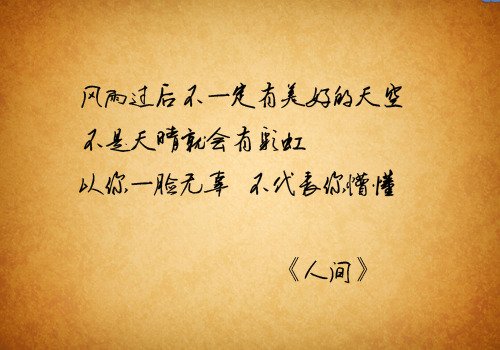 风雨过后不一定有美好的天空
不是天晴就会有彩虹
以你一脸无辜 不代表你懵懂
《人间》